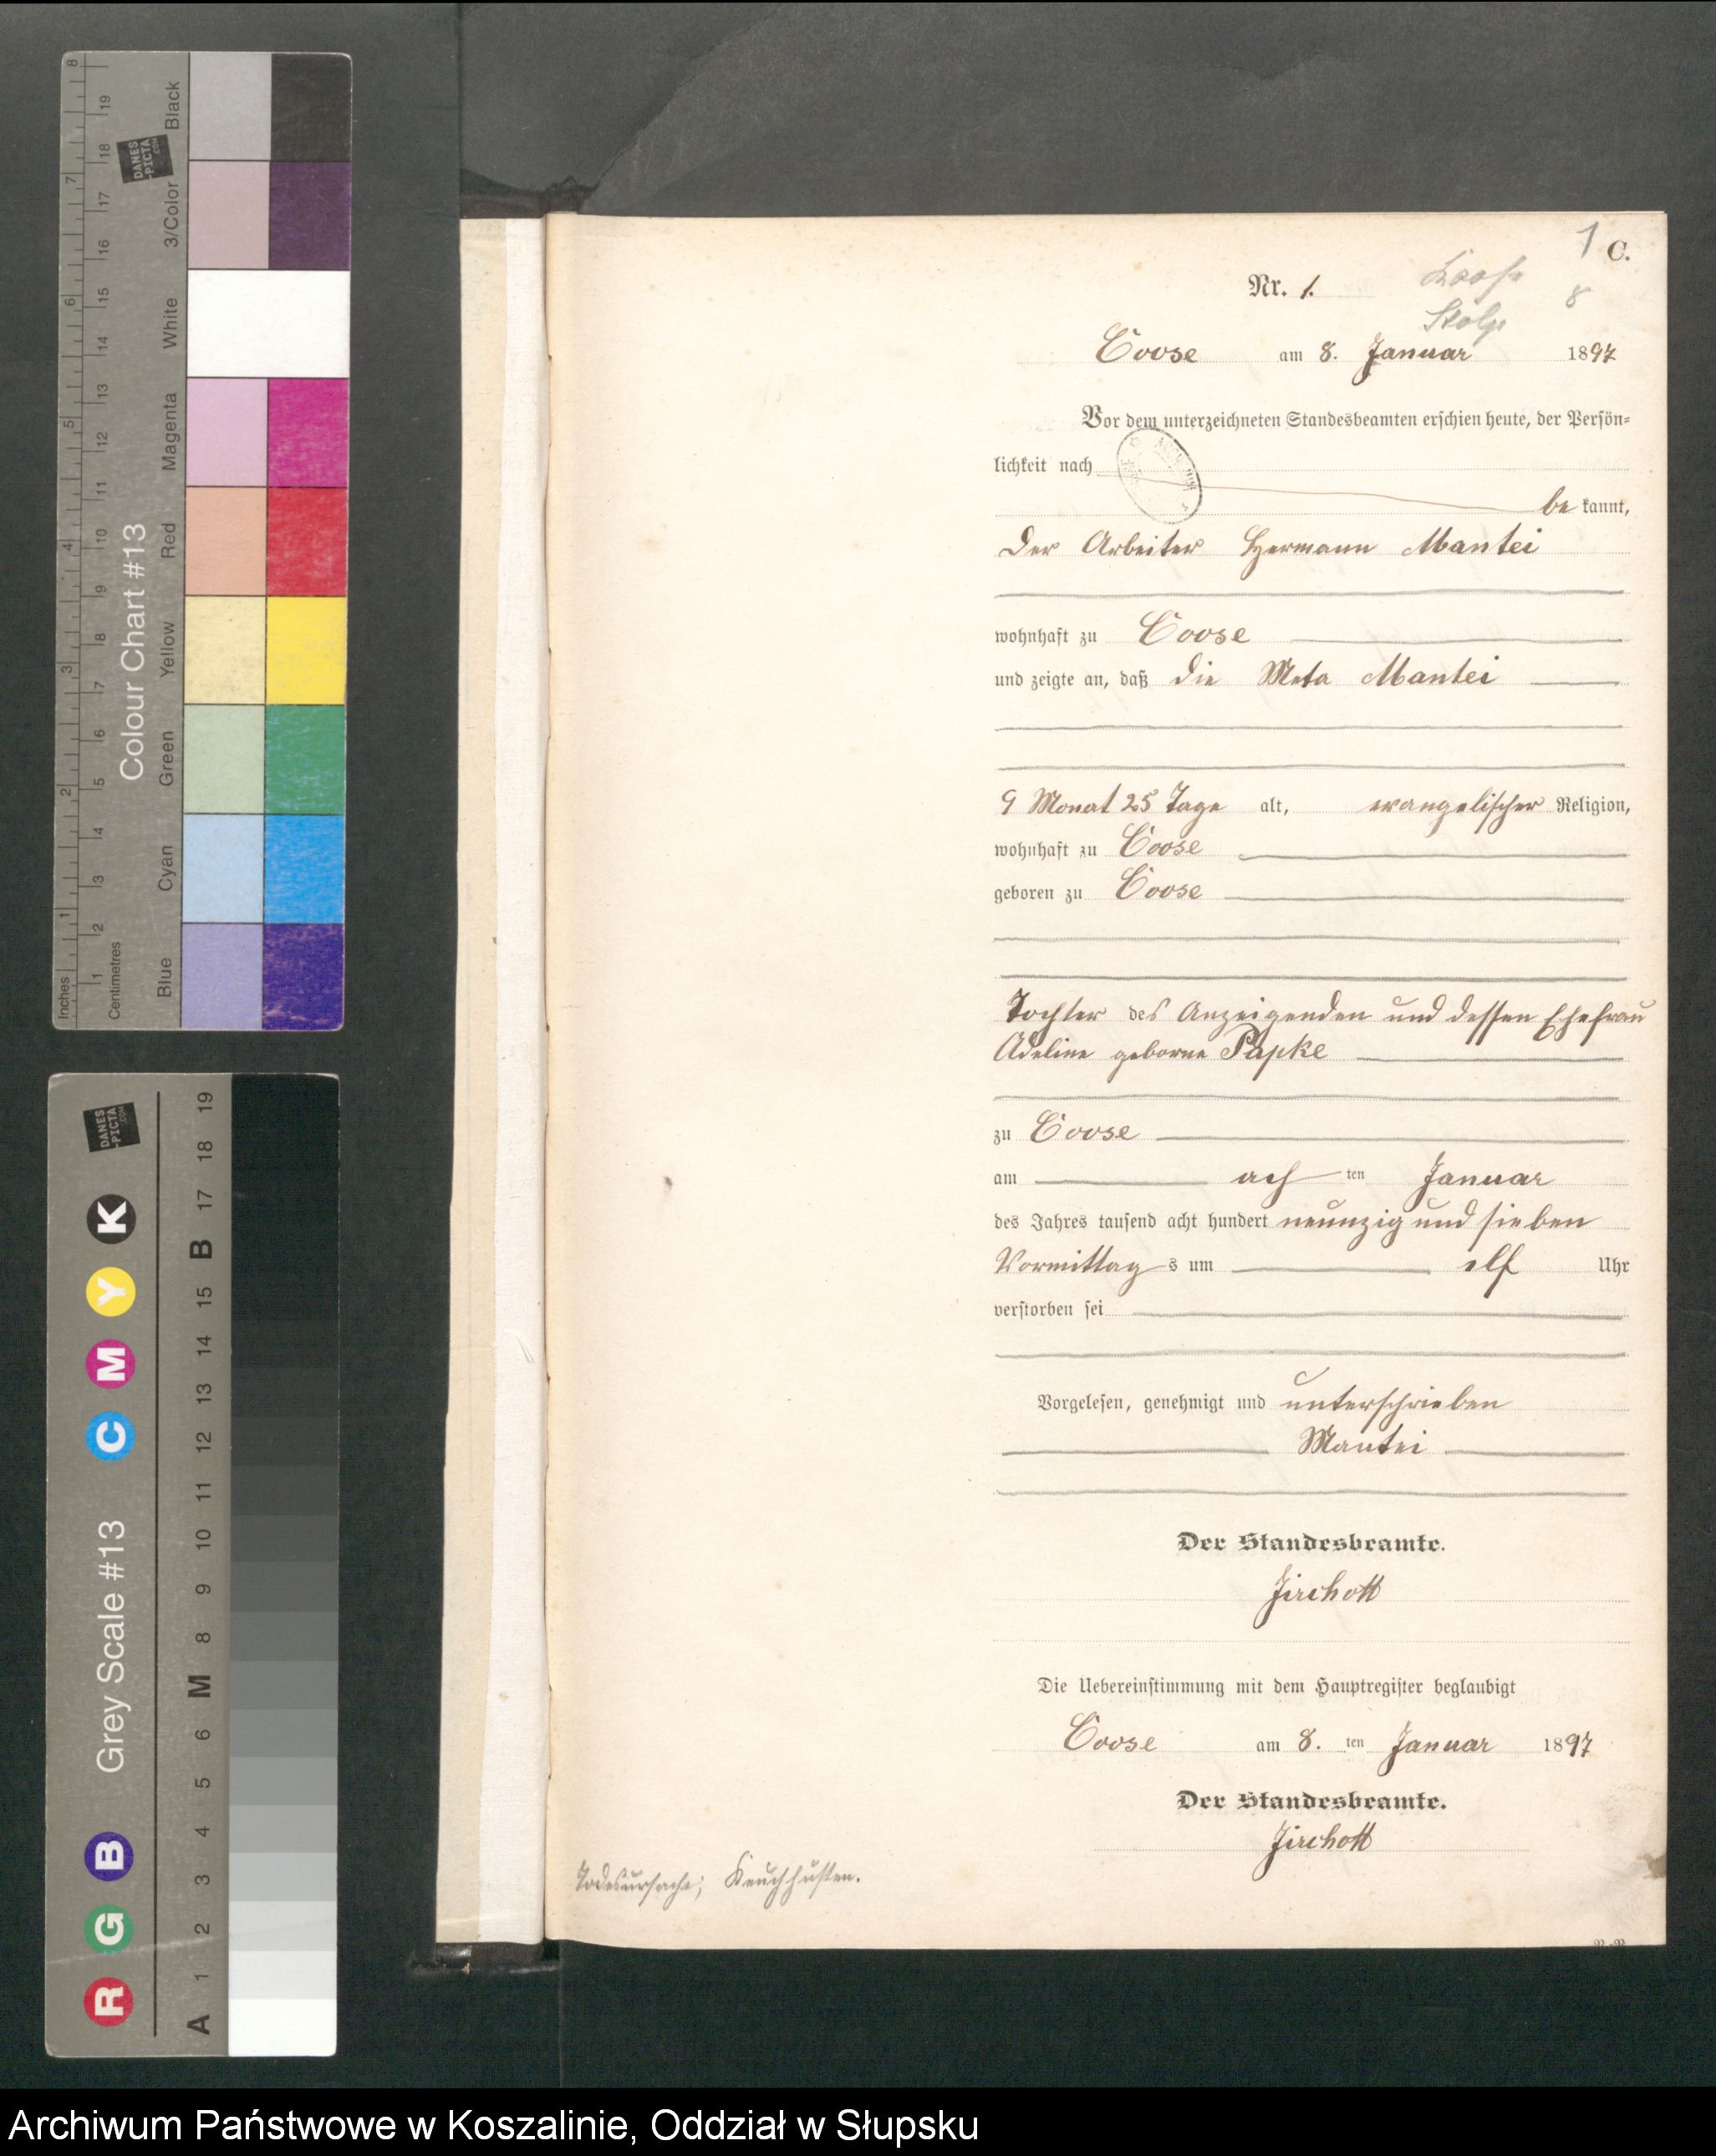 1 C.
Nr. 1.
8
Stolp
Coose am 8. Januar 1897
Vor dem unterzeichneten Standesbeamten erschien heute, der Persön-
lichkeit nach
be kannt,
der Arbeiter Hermann Mantei
wohnhaft zu Coose
und zeigte an, daß die Meta Mantei
9 Monat 25 Tage alt, evangelischer Religion,
wohnhaft zu Coose
geboren zu Coose
Tochter des Anzeigenden und dessen Ehefrau
Adeline geborne Papke
zu Coose
am ach ten Januar
des Jahres tausend acht hundert neunzig und sieben
Vormittag s um elf Uhr
verstorben sei
Vorgelesen, genehmigt und unterschrieben
Mantei
Der Standesbeamte.
Jirchott
Die Uebereinstimmung mit dem Hauptregister beglaubigt
Coose am 8. ten Januar 1897
Der Standesbeamte.
Jirchott
Todesursache; Keuchhusten.
Colour Chart #13
Blue Cyan Green Yellow Red Magenta White 3/Color Black
Inches 1 2 3 4 5 6 7 8
Centimetres 1 2 3 4 5 6 7 8 9 10 11 12 13 14 15 16 17 18 19
DANES
-PICTA
.COM
Grey Scale #13
R G B C M Y K
A 1 2 3 4 5 6 M 8 9 10 11 12 13 14 15 B 17 18 19
DANES
-PICTA
.COM
Archiwum Państwowe w Koszalinie, Oddział w Słupsku